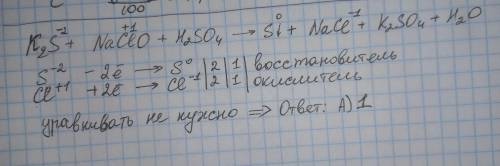 100
K₂S⁻² + NaCl⁺¹O + H₂SO₄ → S⁰↓ + NaCl⁻¹ + K₂SO₄ + H₂O
S⁻² - 2ē → S⁰ |2|1| восстановитель
Cl⁺¹ +2ē → Cl⁻¹ |2|1| окислитель
уравнивать не нужно ⇒ Ответ: А) 1